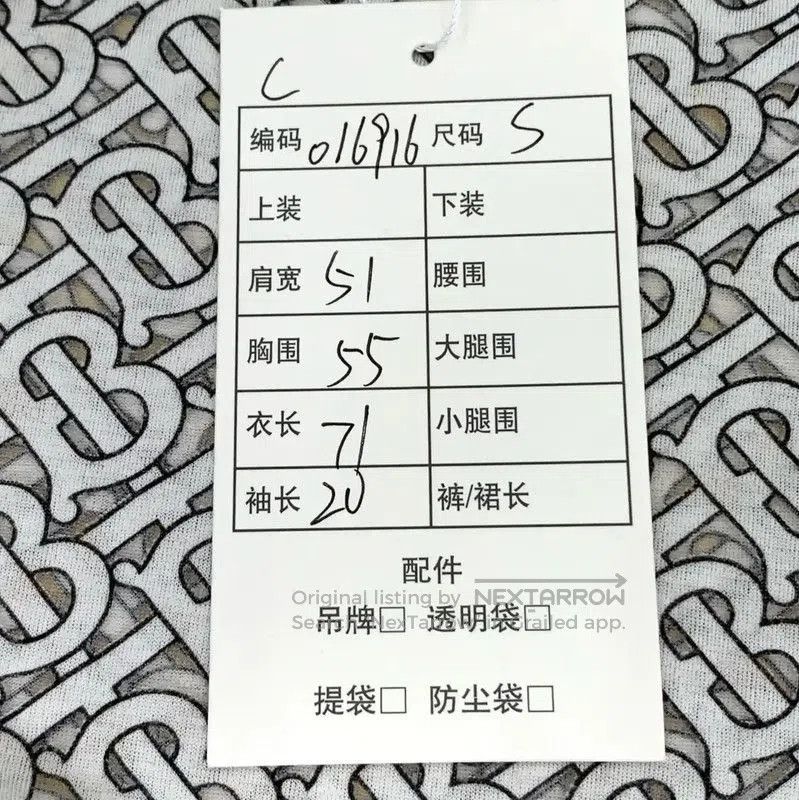 C
编码 016916 尺码 S
上装 下装
肩宽 51 腰围
胸围 55 大腿围
衣长 71 小腿围
袖长 20 裤/裙长
配件
Original listing by NEXTARROW
吊牌□ 透明袋□
提袋□ 防尘袋□